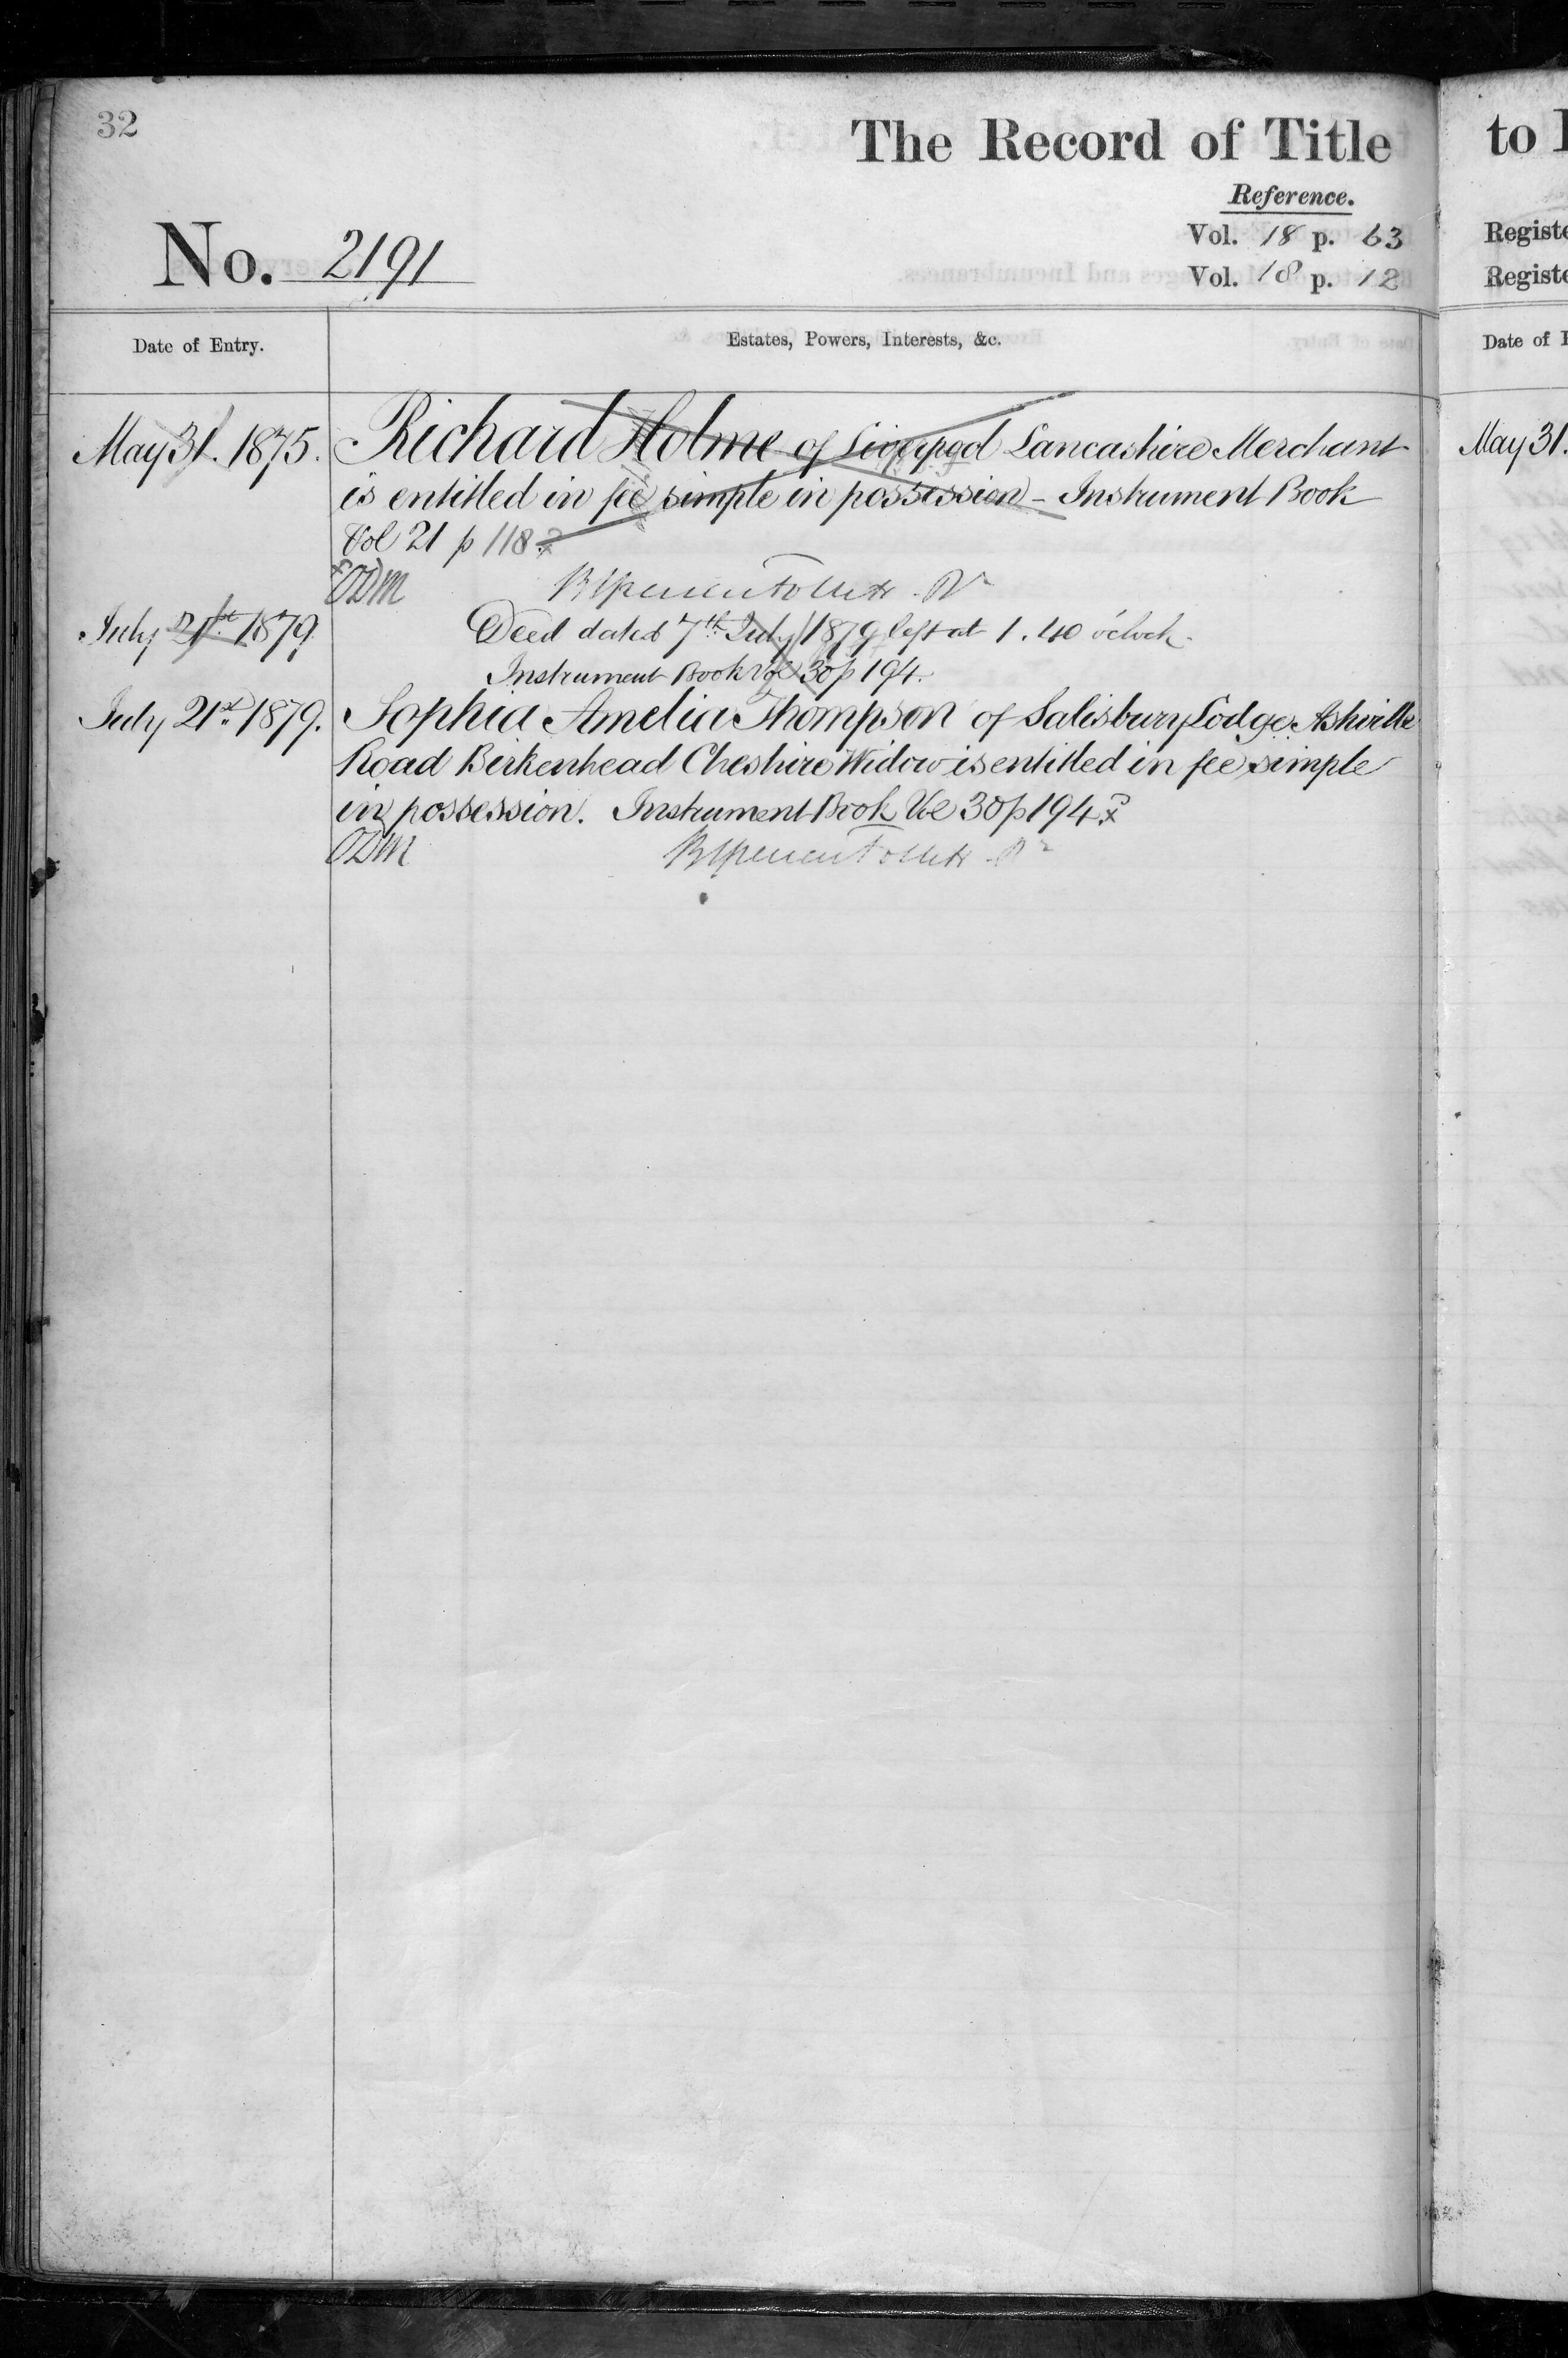 32
The Record of Title
Reference.
No. 2191
Vol. 18 p. 63
Vol. 18 p. 12
Date of Entry.
Estates, Powers, Interests, &c.
May 31. 1875. Richard Holme of Liverpool Lancashire Merchant
is entitled in fee simple in possession - Instrument Book
Vol 21 p 118
ODM
July 21st 1879. Deed dated 7th July 1879 left at 1.40 o'clock.
Instrument Book Vol 30 p 194.
July 21st 1879. Sophia Amelia Thompson of Salisbury Lodge Ashville
Road Birkenhead Cheshire Widow is entitled in fee simple
in possession. Instrument Book Vol 30 p 194
ODM
to
Registe
Registe
Date of
May 31.